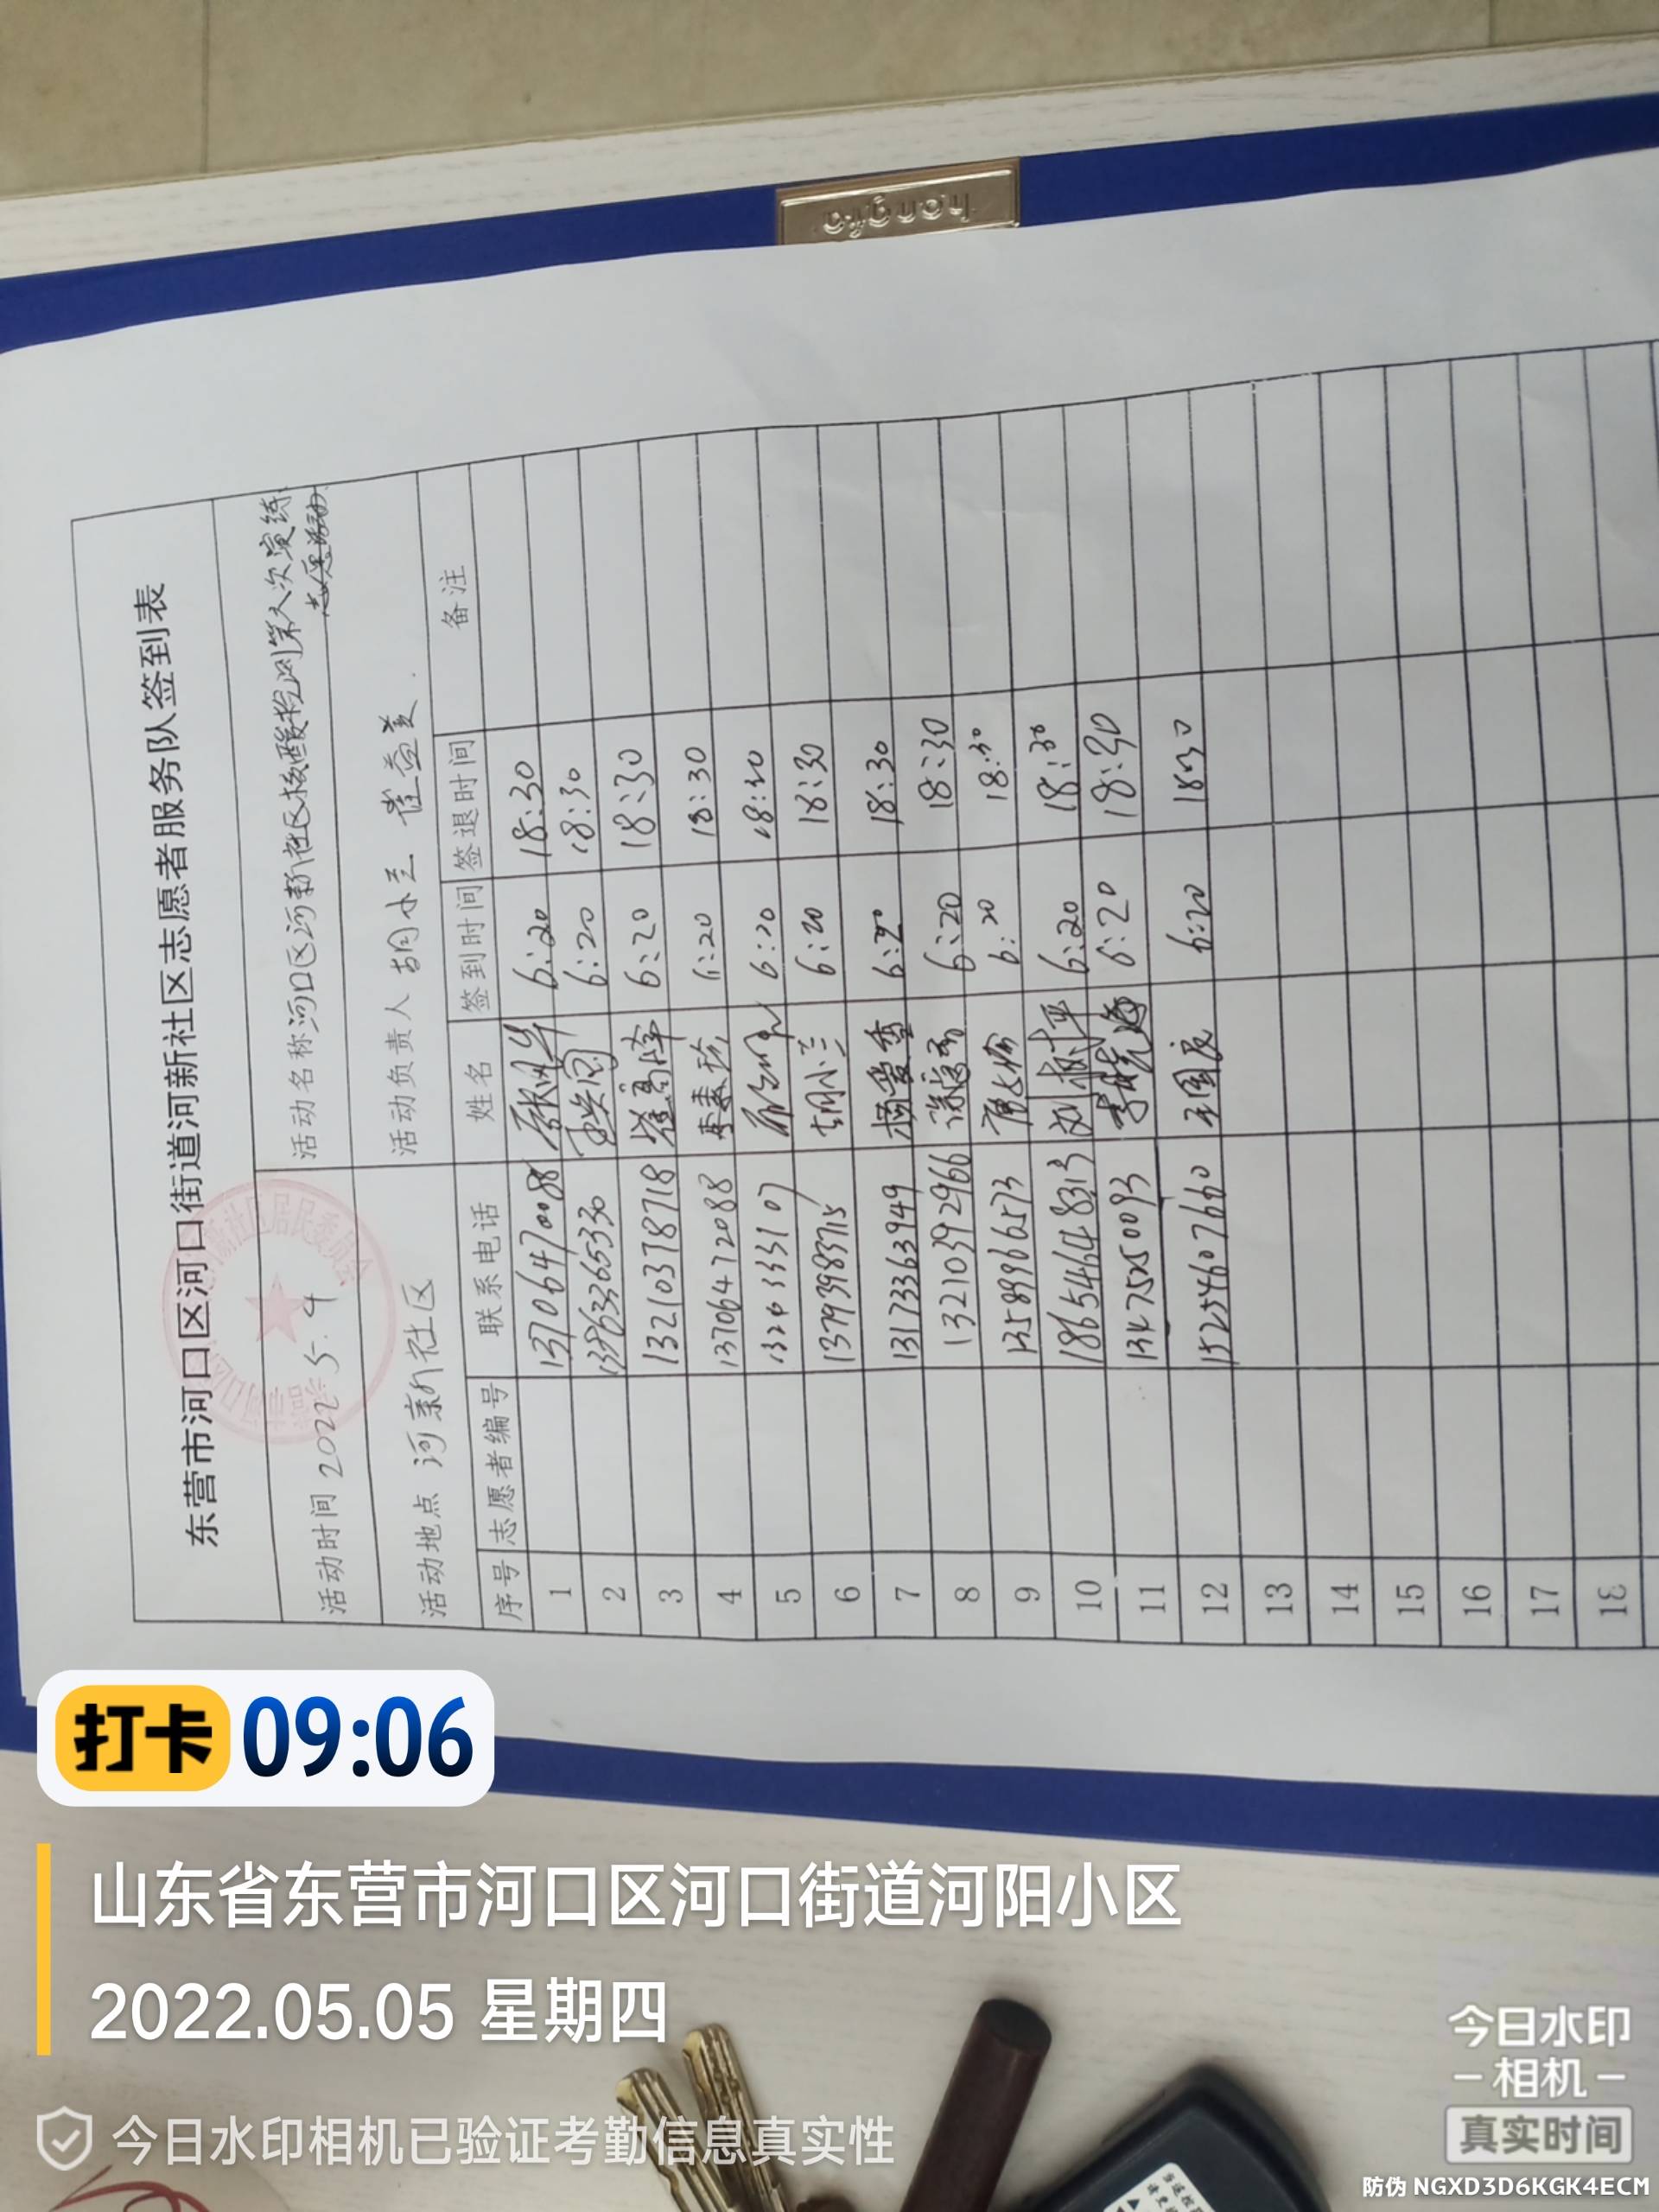 东营市河口区河口街道河新社区志愿者服务队签到表
活动时间 2022年5.4 活动名称 河口区河新社区核酸检测第八次演练
志愿活动
活动地点 河新社区 活动负责人 胡小兰 崔益美
序号 志愿者编号 联系电话 姓名 签到时间 签退时间 备注
1 13706470088 6:20 18:30
2 13863265330 6:20 18:30
3 13210378718 6:20 18:30
4 13706472088 李素珍 6:20 18:30
5 6:20 18:30
6 13793983715 胡小兰 6:20 18:30
7 13173363949 杨爱香 6:20 18:30
8 13210392966 6:20 18:30
9 13589966573 6:20 18:30
10 18654648313 刘树平 6:20 18:30
11 13475250093 李晓海 6:20 18:30
12 15254607660 王国辰 6:20 1830
13
14
15
16
17
18
hongfa
打卡 09:06
山东省东营市河口区河口街道河阳小区
2022.05.05 星期四
今日水印相机已验证考勤信息真实性
今日水印
相机
真实时间
防伪 NGXD3D6KGK4ECM